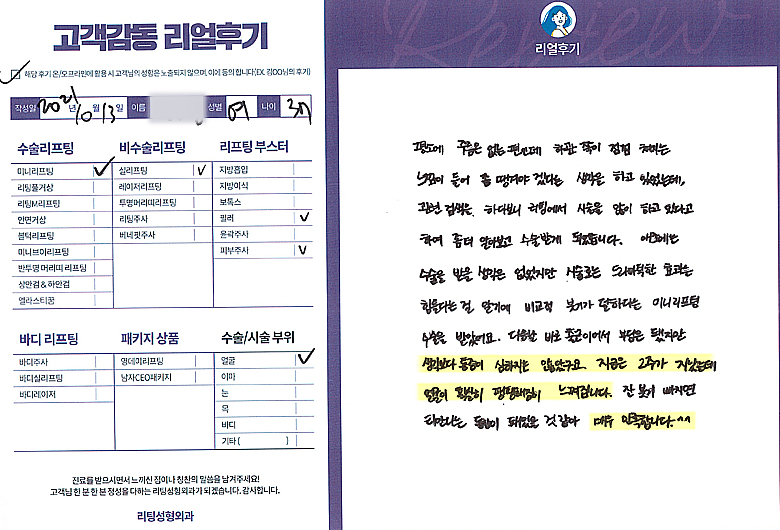 고객감동 리얼후기
해당 후기 온/오프라인에 활용 시 고객님의 성함은 노출되지 않으며, 이에 동의 합니다(EX. 김OO님의 후기)
작성일 2021 년 10 월 13 일 이름 성별 여 나이 37
수술리프팅
미니리프팅
리팅풀거상
리팅M리프팅
안면거상
블럭리프팅
미니브이리프팅
반투명 머리띠 리프팅
상안검 & 하안검
엘라스티꿈
비수술리프팅
실리프팅
레이저리프팅
투명머리띠리프팅
리팅주사
베네핏주사
리프팅 부스터
지방흡입
지방이식
보톡스
필러
윤곽주사
피부주사
바디 리프팅
바디주사
바디실리프팅
바디레이저
패키지 상품
영데이리프팅
남자CEO패키지
수술/시술 부위
얼굴
이마
눈
목
바디
기타 ( )
진료를 받으시면서 느끼신 점이나 칭찬의 말씀을 남겨주세요!
고객님 한 분 한 분 정성을 다하는 리팅성형외과가 되겠습니다. 감사합니다.
리팅성형외과
Review
리얼후기
평소에 주름은 없는 편인데 하관 쪽이 점점 처지는
느낌이 들어 좀 땡겨야 겠다는 생각은 하고 있었는데,
관련 검색을 하다보니 리팅에서 시술을 많이 하고 있다고
하여 좀더 알아보고 수술받게 되었습니다. 이전에는
수술을 받을 생각은 없었지만 시술로는 드라마틱한 효과는
힘들다는 걸 알기에 비교적 붓기가 덜하다는 미니리프팅
수술을 받았어요. 다음날 바로 출근이어서 부담은 됐지만
생각보다 통증이 심하지는 않았구요. 지금은 2주가 지났는데
얼굴이 확실히 팽팽해짐이 느껴집니다. 잔 붓기 빠지면
티안나는 동안이 돼있을 것 같아 매우 만족합니다.^^